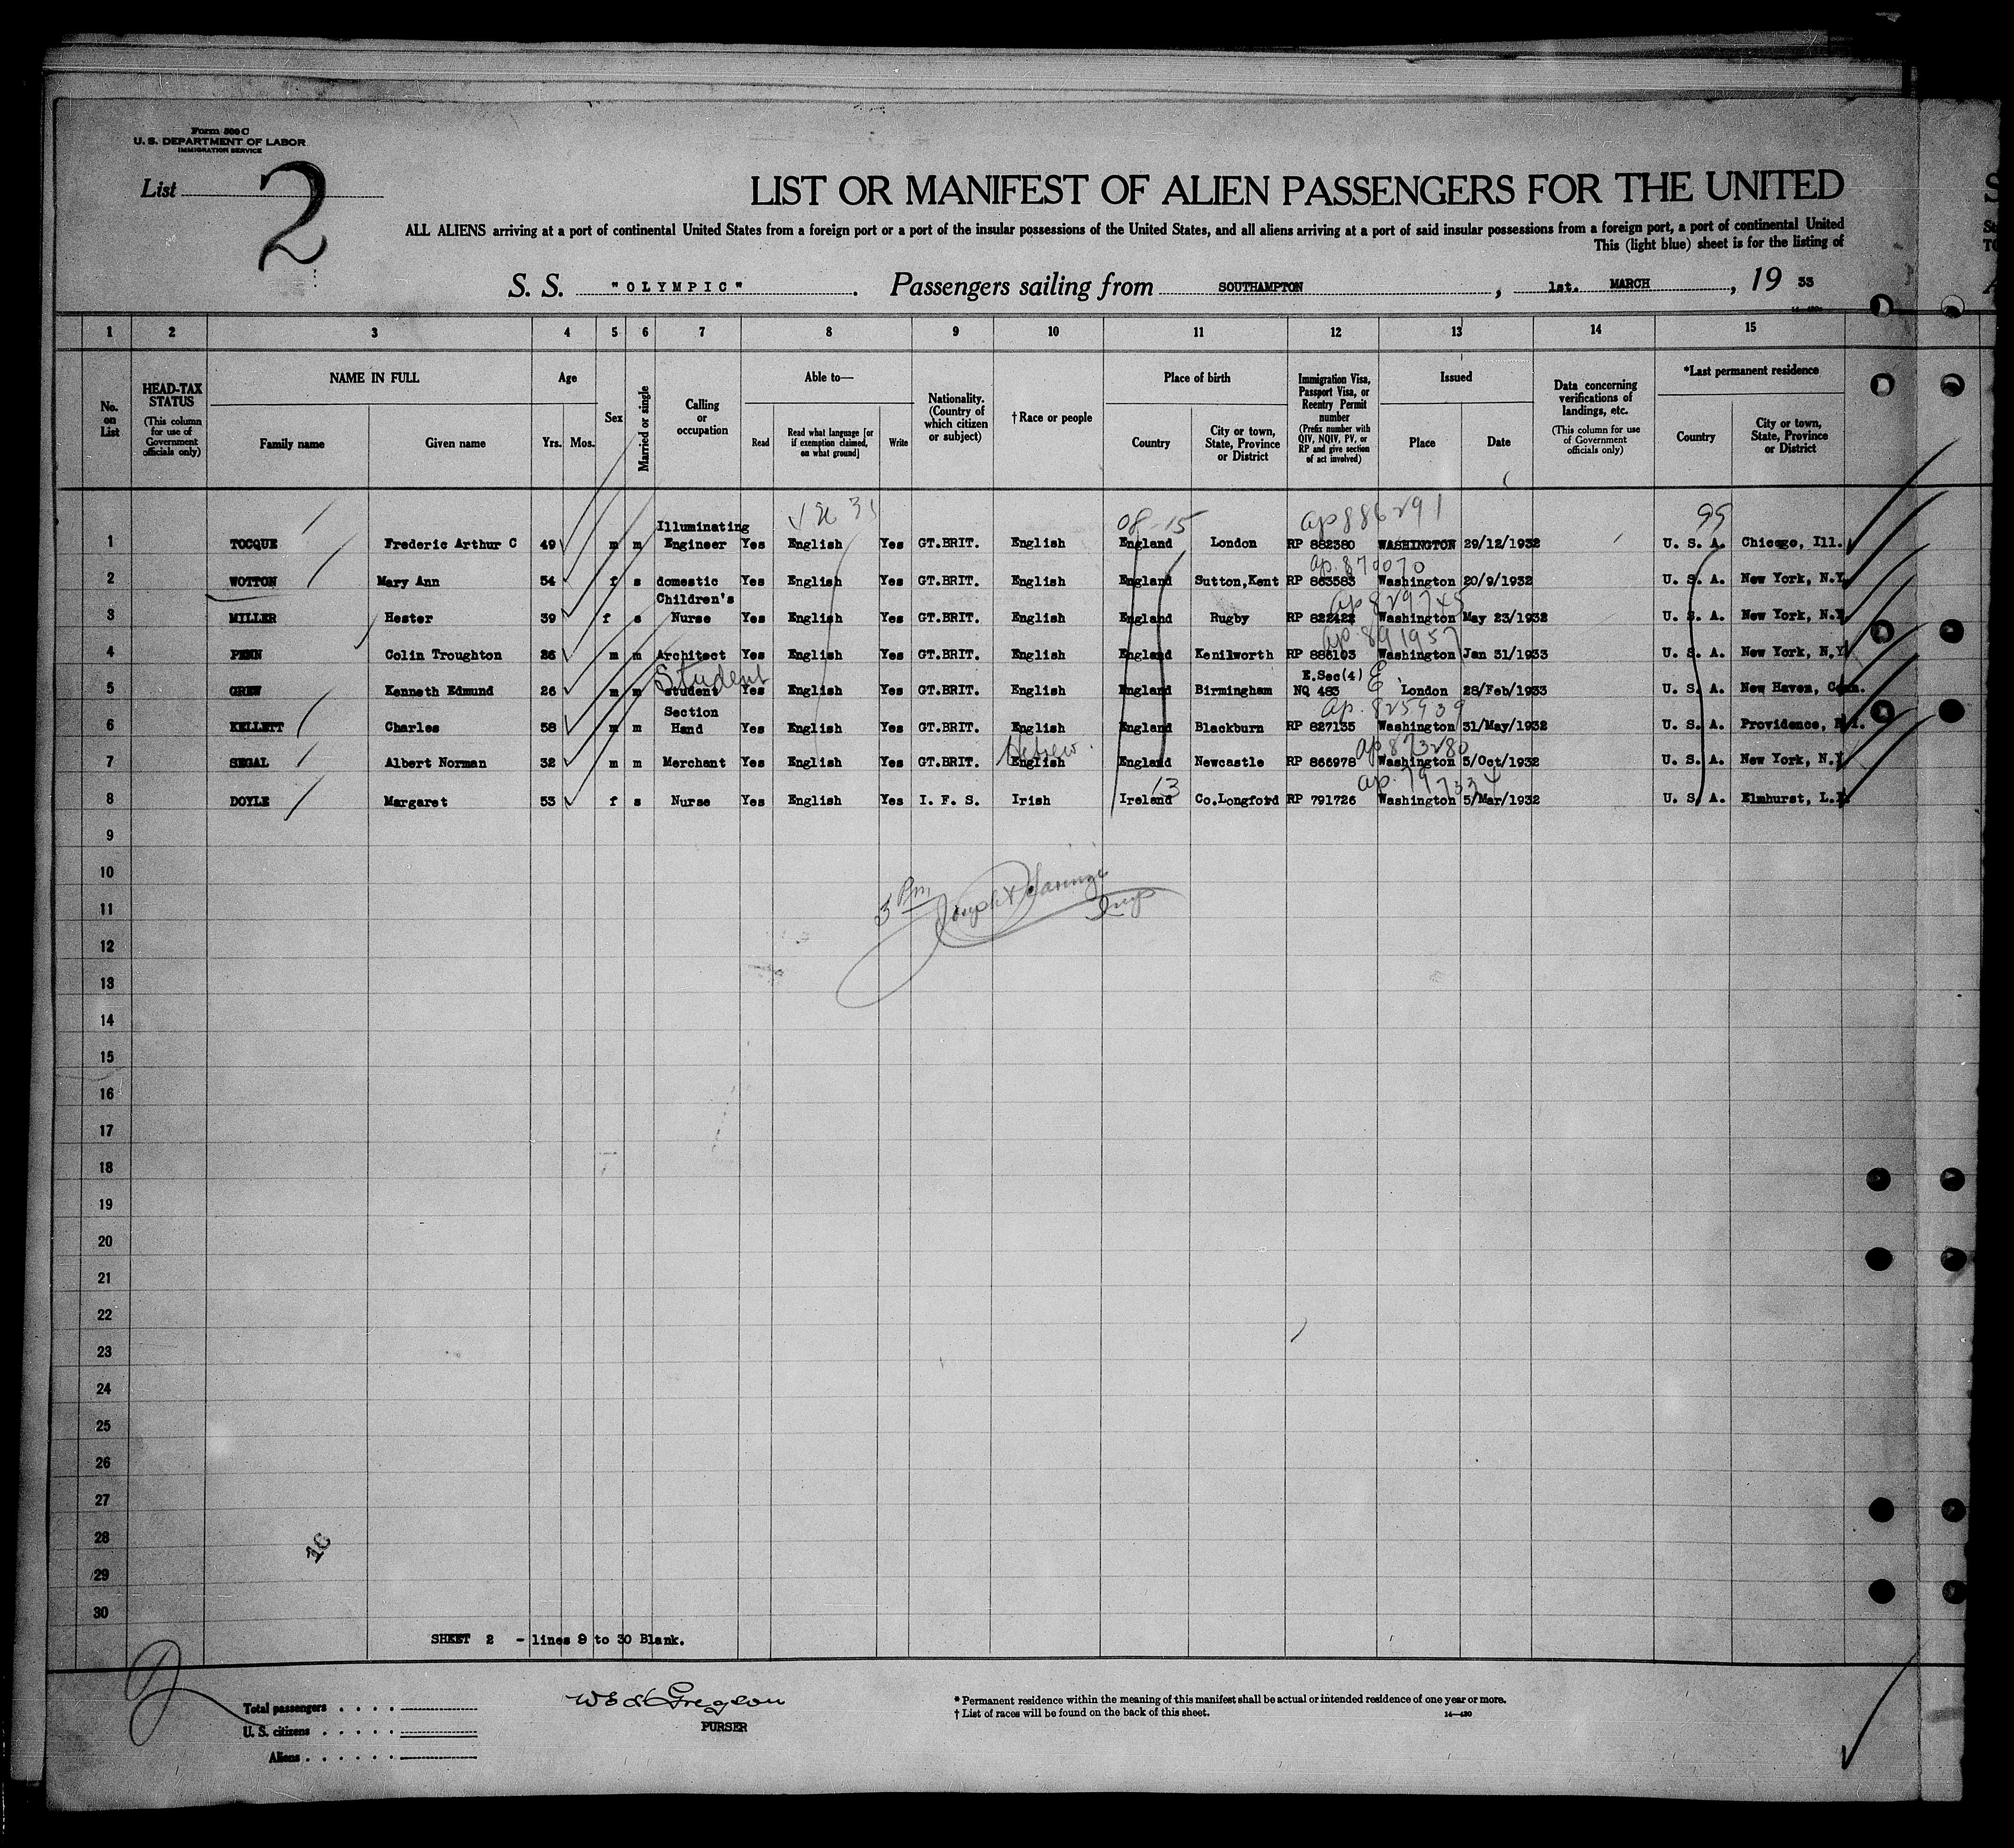 Form 500 C
U. S. DEPARTMENT OF LABOR
IMMIGRATION SERVICE
List 2
LIST OR MANIFEST OF ALIEN PASSENGERS FOR THE UNITED
ALL ALIENS arriving at a port of continental United States from a foreign port or a port of the insular possessions of the United States, and all aliens arriving at a port of said insular possessions from a foreign port, a port of continental United
This (light blue) sheet is for the listing of
S. S. "OLYMPIC". Passengers sailing from SOUTHAMPTON, 1st. MARCH, 19 33
1 2 3 4 5 6 7 8 9 10 11 12 13 14 15
No. on List
HEAD-TAX STATUS (This column for use of Government officials only)
NAME IN FULL
Family name Given name
Age
Yrs. Mos.
Sex
Married or single
Calling or occupation
Able to—
Read Read what language [or if exemption claimed, on what ground] Write
Nationality. (Country of which citizen or subject)
† Race or people
Place of birth
Country City or town, State, Province or District
Immigration Visa, Passport Visa, or Reentry Permit number (Prefix number with QIV, NQIV, PV, or RP and give section of act involved)
Issued
Place Date
Data concerning verifications of landings, etc. (This column for use of Government officials only)
*Last permanent residence
Country City or town, State, Province or District
08-15 ap 886291 99
1 TOCQUE Frederic Arthur C 49 m m Illuminating Engineer Yes English Yes GT.BRIT. English England London RP 882380 WASHINGTON 29/12/1932 U. S. A. Chicago, Ill.
ap. 870070
2 WOTTON Mary Ann 54 f s domestic Yes English Yes GT.BRIT. English England Sutton,Kent RP 863583 Washington 20/9/1932 U. S. A. New York, N.Y.
ap 829745
3 MILLER Hester 39 f s Children's Nurse Yes English Yes GT.BRIT. English England Rugby RP 822422 Washington May 23/1932 U. S. A. New York, N.Y.
ap 891957
4 PENN Colin Troughton 26 m m Architect Yes English Yes GT.BRIT. English England Kenilworth RP 886103 Washington Jan 31/1933 U. S. A. New York, N.Y.
Student
5 GREW Kenneth Edmund 26 m m student Yes English Yes GT.BRIT. English England Birmingham E.Sec(4) NQ 483 London 28/Feb/1933 U. S. A. New Haven, Conn.
ap. 825939
6 KELLETT Charles 58 m m Section Hand Yes English Yes GT.BRIT. English England Blackburn RP 827135 Washington 31/May/1932 U. S. A. Providence, R.I.
Hebrew. ap 873280
7 SEGAL Albert Norman 32 m m Merchant Yes English Yes GT.BRIT. English England Newcastle RP 866978 Washington 5/Oct/1932 U. S. A. New York, N.Y.
13 ap. 797334
8 DOYLE Margaret 53 f s Nurse Yes English Yes I. F. S. Irish Ireland Co.Longford RP 791726 Washington 5/Mar/1932 U. S. A. Elmhurst, L.I.
9
10
3 Pm Joseph
11
12
13
14
15
16
17
18
19
20
21
22
23
24
25
26
27
28
16
29
30
SHEET 2 - lines 9 to 30 Blank.
Total passengers
U. S. citizens
Aliens
Gregson
PURSER
* Permanent residence within the meaning of this manifest shall be actual or intended residence of one year or more.
† List of races will be found on the back of this sheet.
14—420